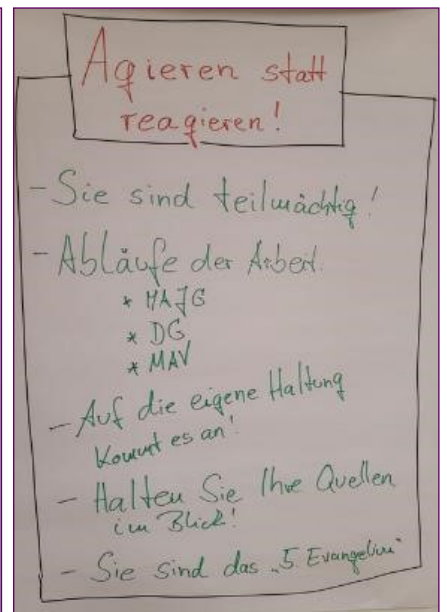 Agieren statt
reagieren!
- Sie sind teilmächtig!
- Abläufe der Arbeit
* HAJG
* DG
* MAV
- Auf die eigene Haltung
kommt es an!
- Halten Sie Ihre Quellen
im Blick!
- Sie sind das „5. Evangelium"